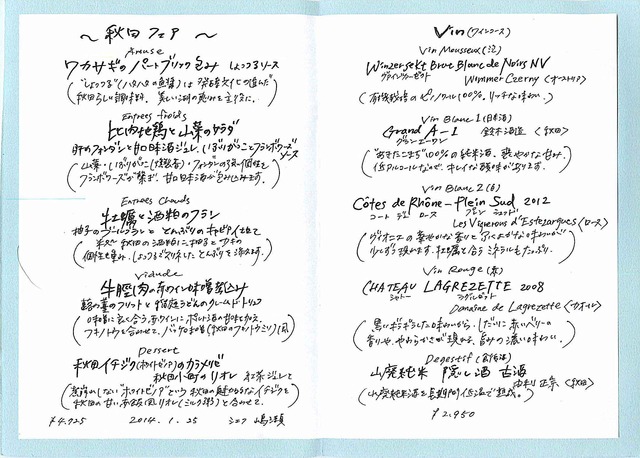 ～ 秋田フェア ～
Amuse
ワカサギのパートブリック包み しょっつるソース
("しょっつる"(ハタハタの魚醤)は発酵文化の進んだ
秋田らしい調味料。美しい湖の恵みを主役に。)
Entrées froids
比内地鶏と山菜のサラダ
肝のフォンダンと甘口日本酒ジュレ、いぶりがっことフランボワーズソース
(山菜・いぶりがっこ(燻製香)・フォンダンの強い個性を
フランボワーズが繋ぎ、甘口日本酒が包み込みます。)
Entrées Chauds
牡蠣と酒粕のフラン
柚子の とんぶりのキャビア仕立て
秋田の酒粕に柚子と
しょっつる とんぶりを添えます。)
Viande
牛脛肉の赤ワイン味噌煮込み
蕗の薹のフリットと稲庭うどんの
(味噌に良く合う赤ワインに
フキノトウを合わせて、バッケ味噌(秋田のフキノトウミソ)風)
Dessert
秋田イチジク(ホワイトゼノア)のカラメリゼ
秋田小町のリオレ 紅茶ジュレと
ホワイトゼノア"という秋田の イチジクを
秋田の甘い赤飯風リオレ(ミルク粥)と合わせて。)
¥4.725 2014.1.25 シェフ
Vin (ワインコース)
Vin Mousseux (泡)
Winzersekt Brut Blanc de Noirs NV
ヴィンツァーゼクト Wimmer Czerny <オーストリア>
(有機栽培のピノノワール100%。リッチな味わい。)
Vin Blanc 1 (日本酒)
Grand A-1 鈴木酒造 <秋田>
グランエーワン
("あきたこまち"100%の純米酒。爽やかな甘み、
低アルコールなので、キレイな酸味があります。)
Vin Blanc 2 (白)
Côtes de Rhône - Plein Sud 2012
コート デュ ローヌ プラン シュッド
Les Vignerons d'Estezargues <ローヌ>
(ヴィオニエの華やかな香りとふくよかな味わいが
牡蠣と合うミネラルもたっぷり。)
Vin Rouge (赤)
CHATEAU LAGREZETTE 2008
シャトー ラグレゼット
Domaine de Lagrezette <カオール>
(黒い 味わいから、しだいに赤いベリーの
香りや、やわらかさが現れる、旨みの濃い味わい。)
Degestif (食後酒)
山廃純米 隠し酒 古酒
<秋田>
(山廃純米酒を長期間低温で熟成。)
¥2.950